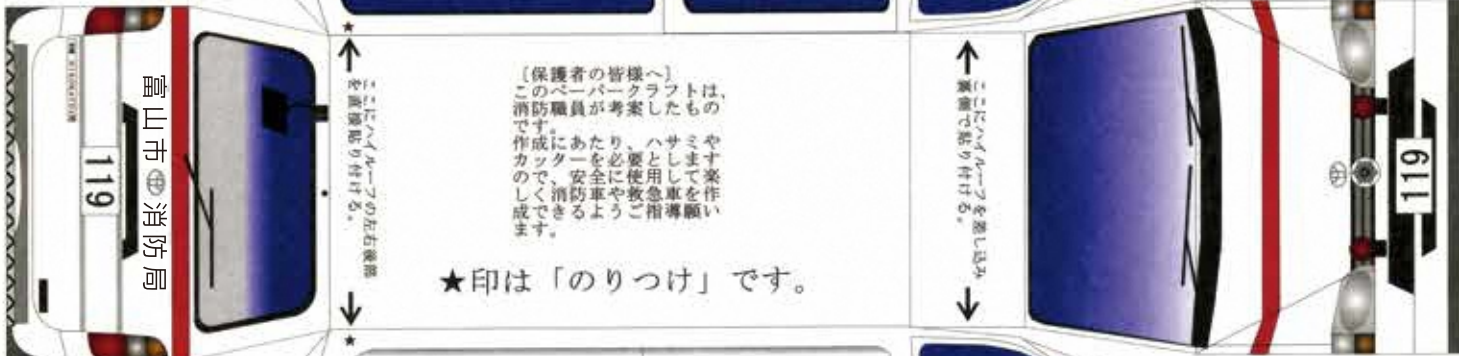 富山市消防局
119
ここにハイルーフの左右後部
を直接貼り付ける。
[保護者の皆様へ]
このペーパークラフトは、
消防職員が考案したもの
です。
作成にあたり、ハサミや
カッターを必要とします
ので、安全に使用して楽
しく消防車や救急車を作
成できるようご指導願い
ます。
★印は「のりつけ」です。
ここにハイルーフを差し込み
裏側で貼り付ける。
119